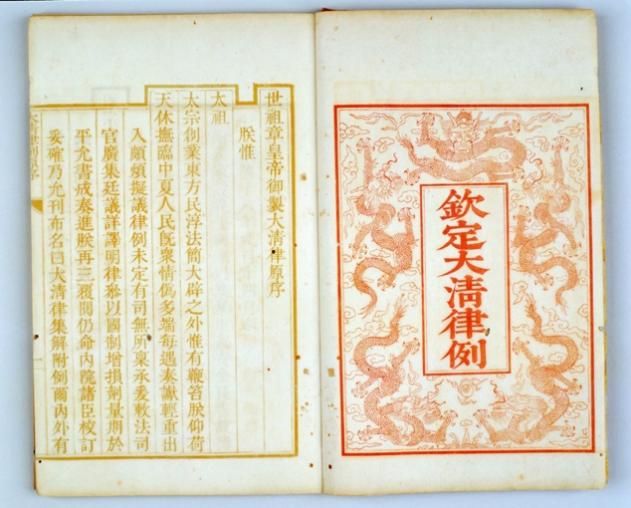 欽定大清律例
世祖章皇帝御製大清律原序
朕惟
太祖
太宗創業東方民淳法簡大辟之外惟有鞭笞朕仰荷
天休撫臨中夏人民既衆情僞多端每遇奏讞輕重出
入頗煩擬議律例未定有司無所稟承爰敕法司
官廣集廷議詳譯明律參以國制增損劑量期於
平允書成奏進朕再三覆閱仍命內院諸臣校訂
妥確乃允刊布名曰大清律集解附例爾內外有